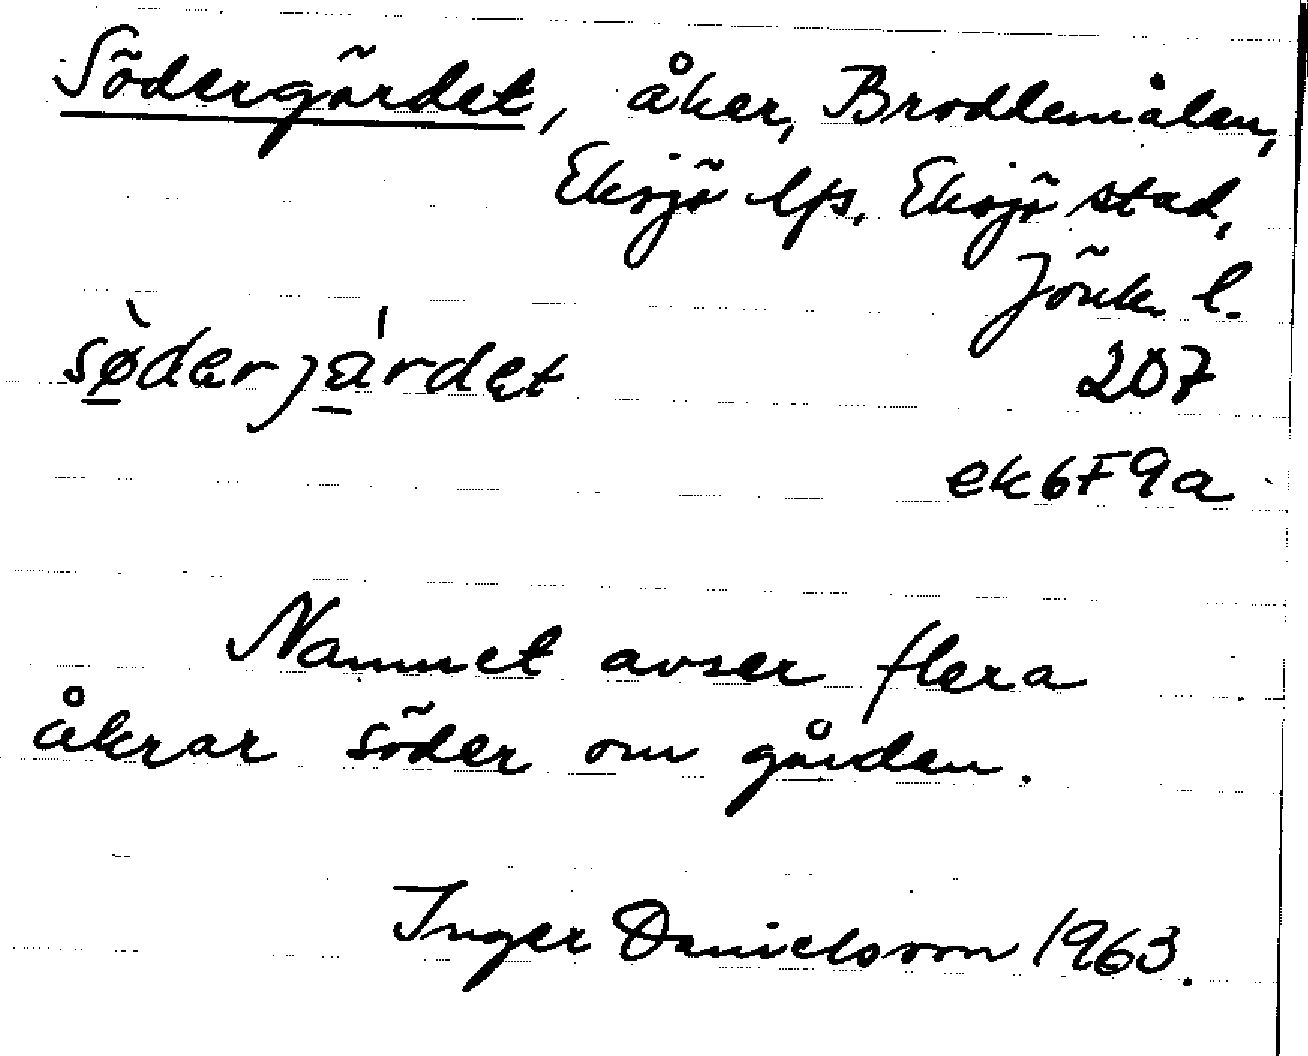 Södergärdet, åker, Broddemålen,
Eksjö lfs, Eksjö stad,
Jönk. l.
sø̀derjä́rdet 207
ek6F9a
Namnet avser flera
åkrar söder om gården.
Inger Danielsson 1963.